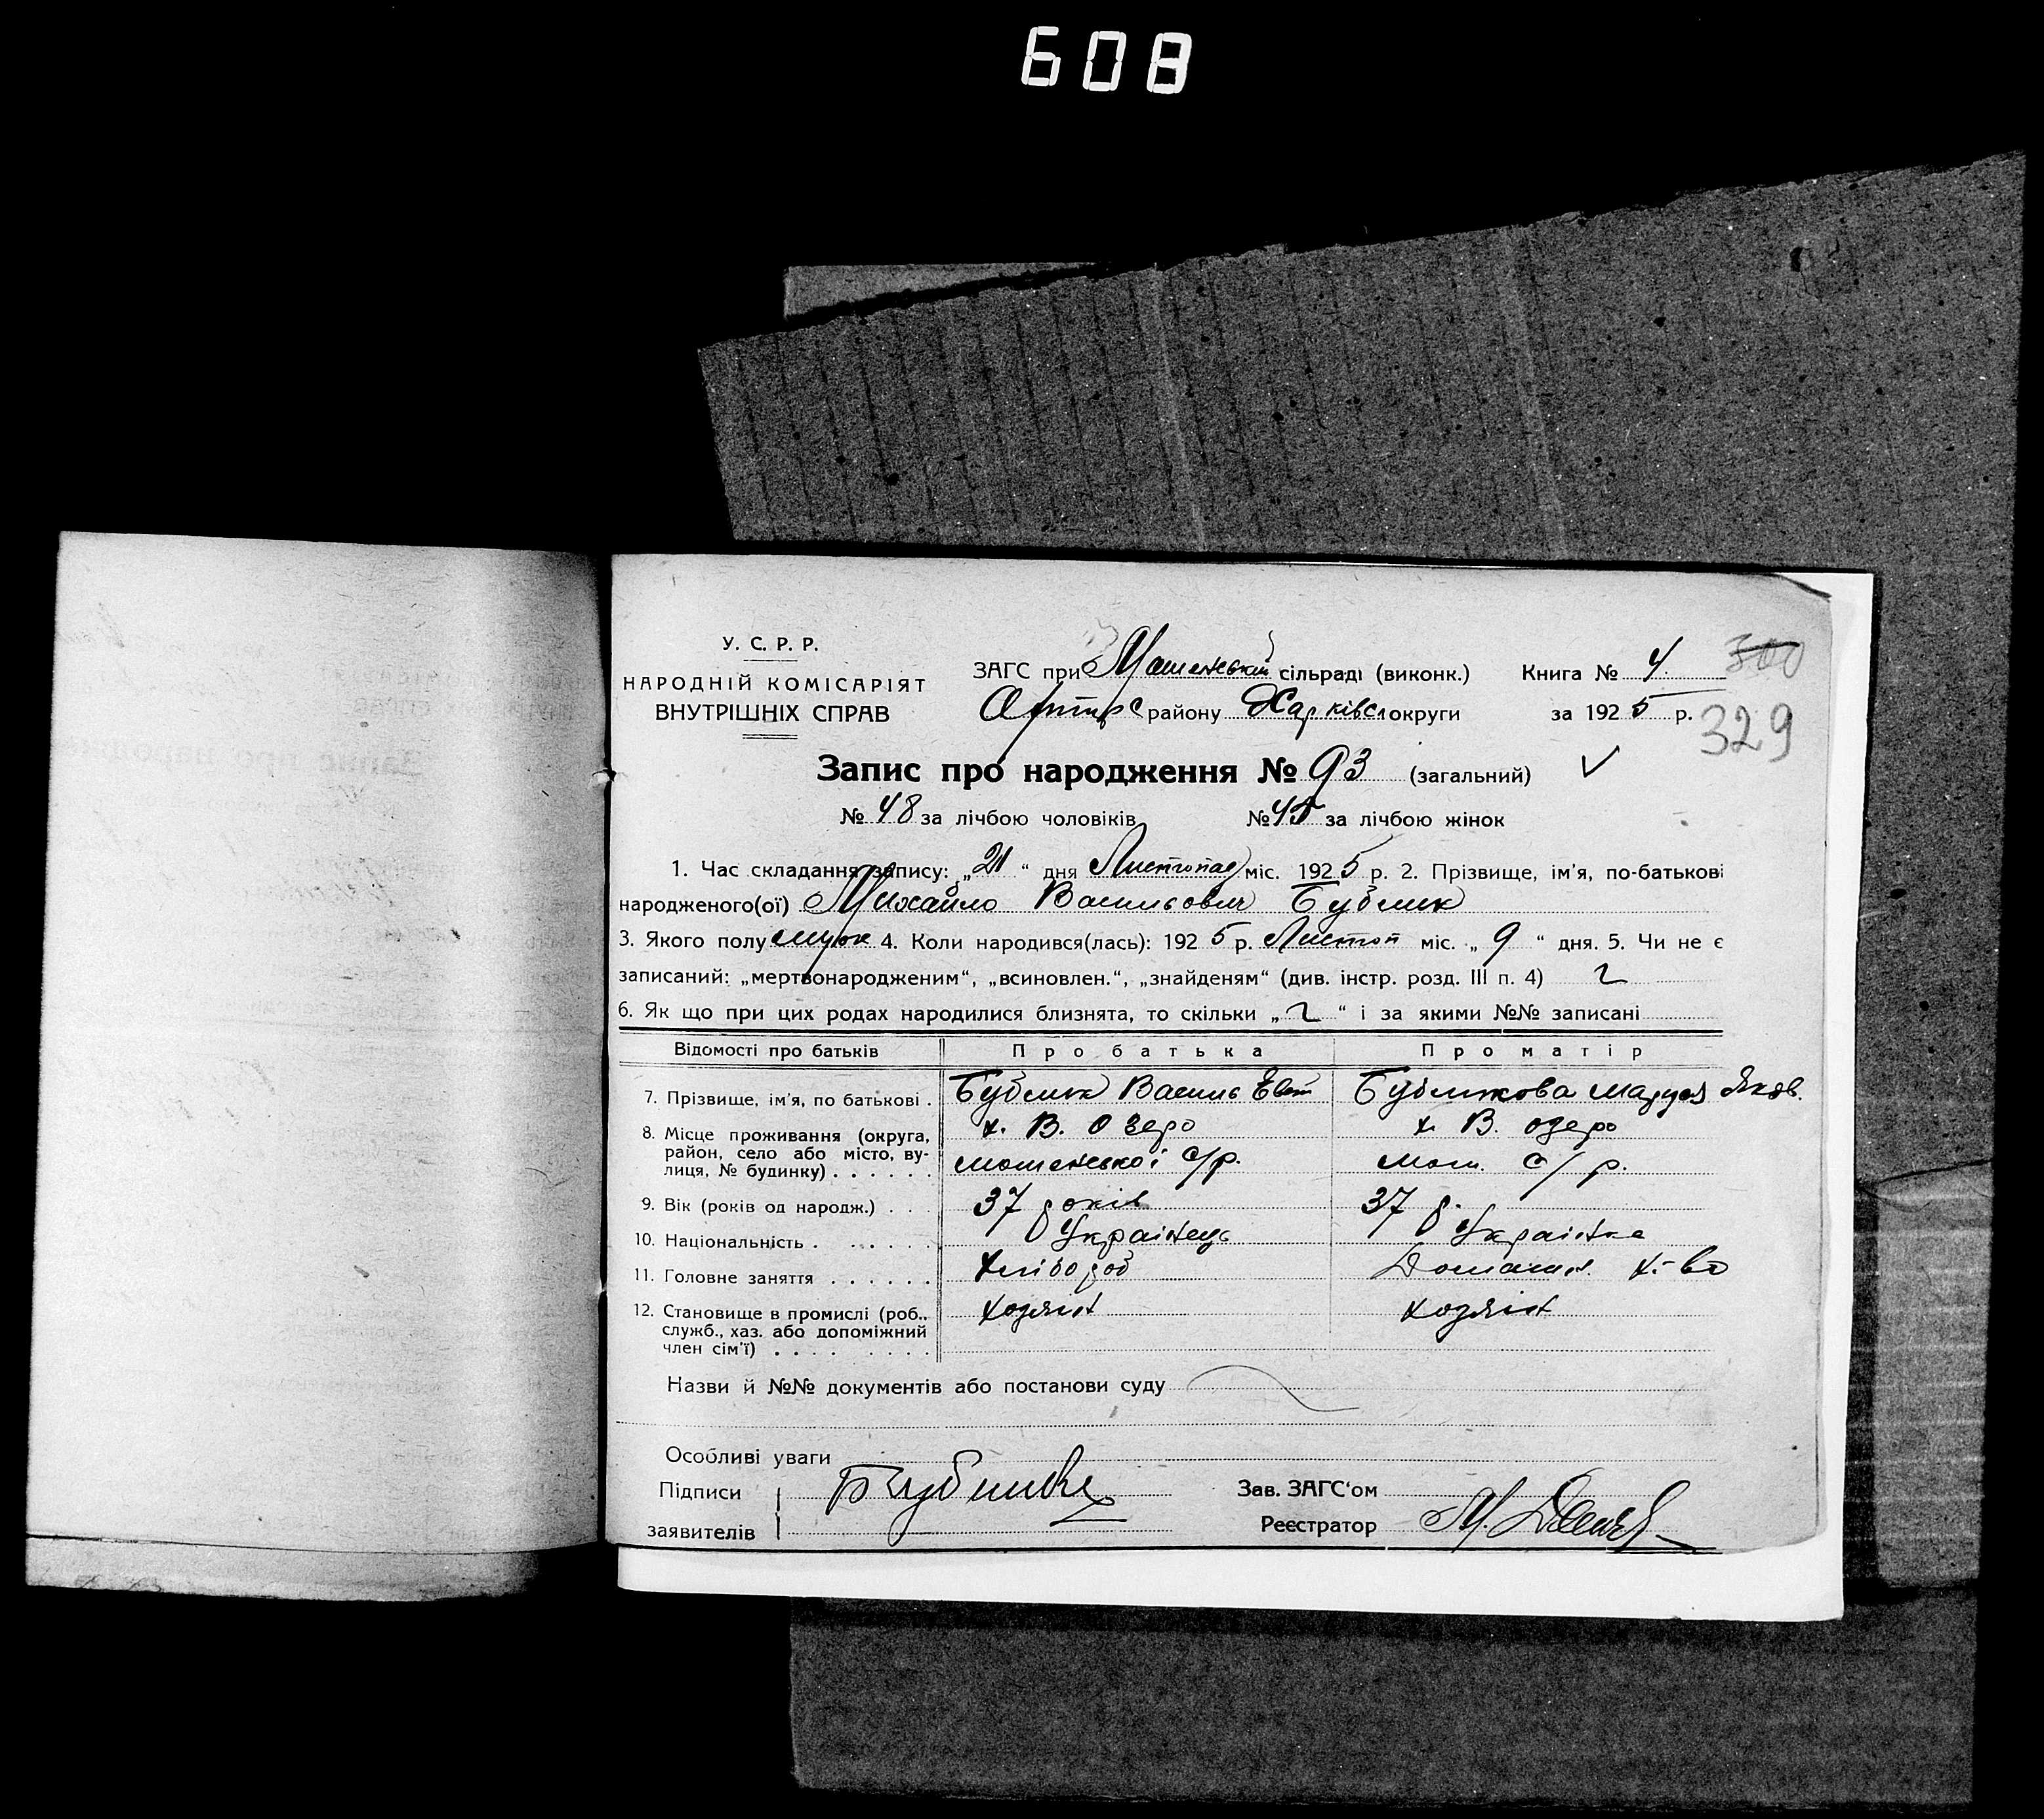 608
У. С. Р. Р.
НАРОДНІЙ КОМІСАРІЯТ
ВНУТРІШНІХ СПРАВ
ЗАГС при Мошенській сільраді (виконк.)
району Харківс округи
Книга № 4.
за 1925 р.
300
329
Запис про народження № 93 (загальний)
№ 48 за лічбою чоловіків № 45 за лічбою жінок
1. Час складання запису: „21“ дня Листопад міс. 1925 р. 2. Прізвище, ім'я, по-батькові
народженого(ої) Михайло Васильович Бублик
3. Якого полу муж 4. Коли народився(лась): 1925 р. Листоп міс. „9“ дня. 5. Чи не є
записаний: „мертвонародженим“, „всиновлен.“, „знайденям“ (див. інстр. розд. III п. 4)
6. Як що при цих родах народилися близнята, то скільки „ “ і за якими №№ записані
Відомості про батьків Про батька Про матір
7. Прізвище, ім'я, по батькові . Бублик Василь Євт Бубликова Маруся Яков.
8. Місце проживання (округа, район, село або місто, вулиця, № будинку) . . . . . .
х. В. Озеро х. В. озеро
мошенської с/р. Мош. с/р.
9. Вік (років од народж.) . . . 37 років 37 р.
10. Національність . . . . . . Українець Українка
11. Головне заняття . . . . . . Хлібороб Домашн. х-во
12. Становище в промислі (роб., служб., хаз. або допоміжний член сім'ї) . . . . . . . . хозяін хозяін
Назви й №№ документів або постанови суду
Особливі уваги
Підписи
заявителів
Зав. ЗАГС'ом
Реєстратор